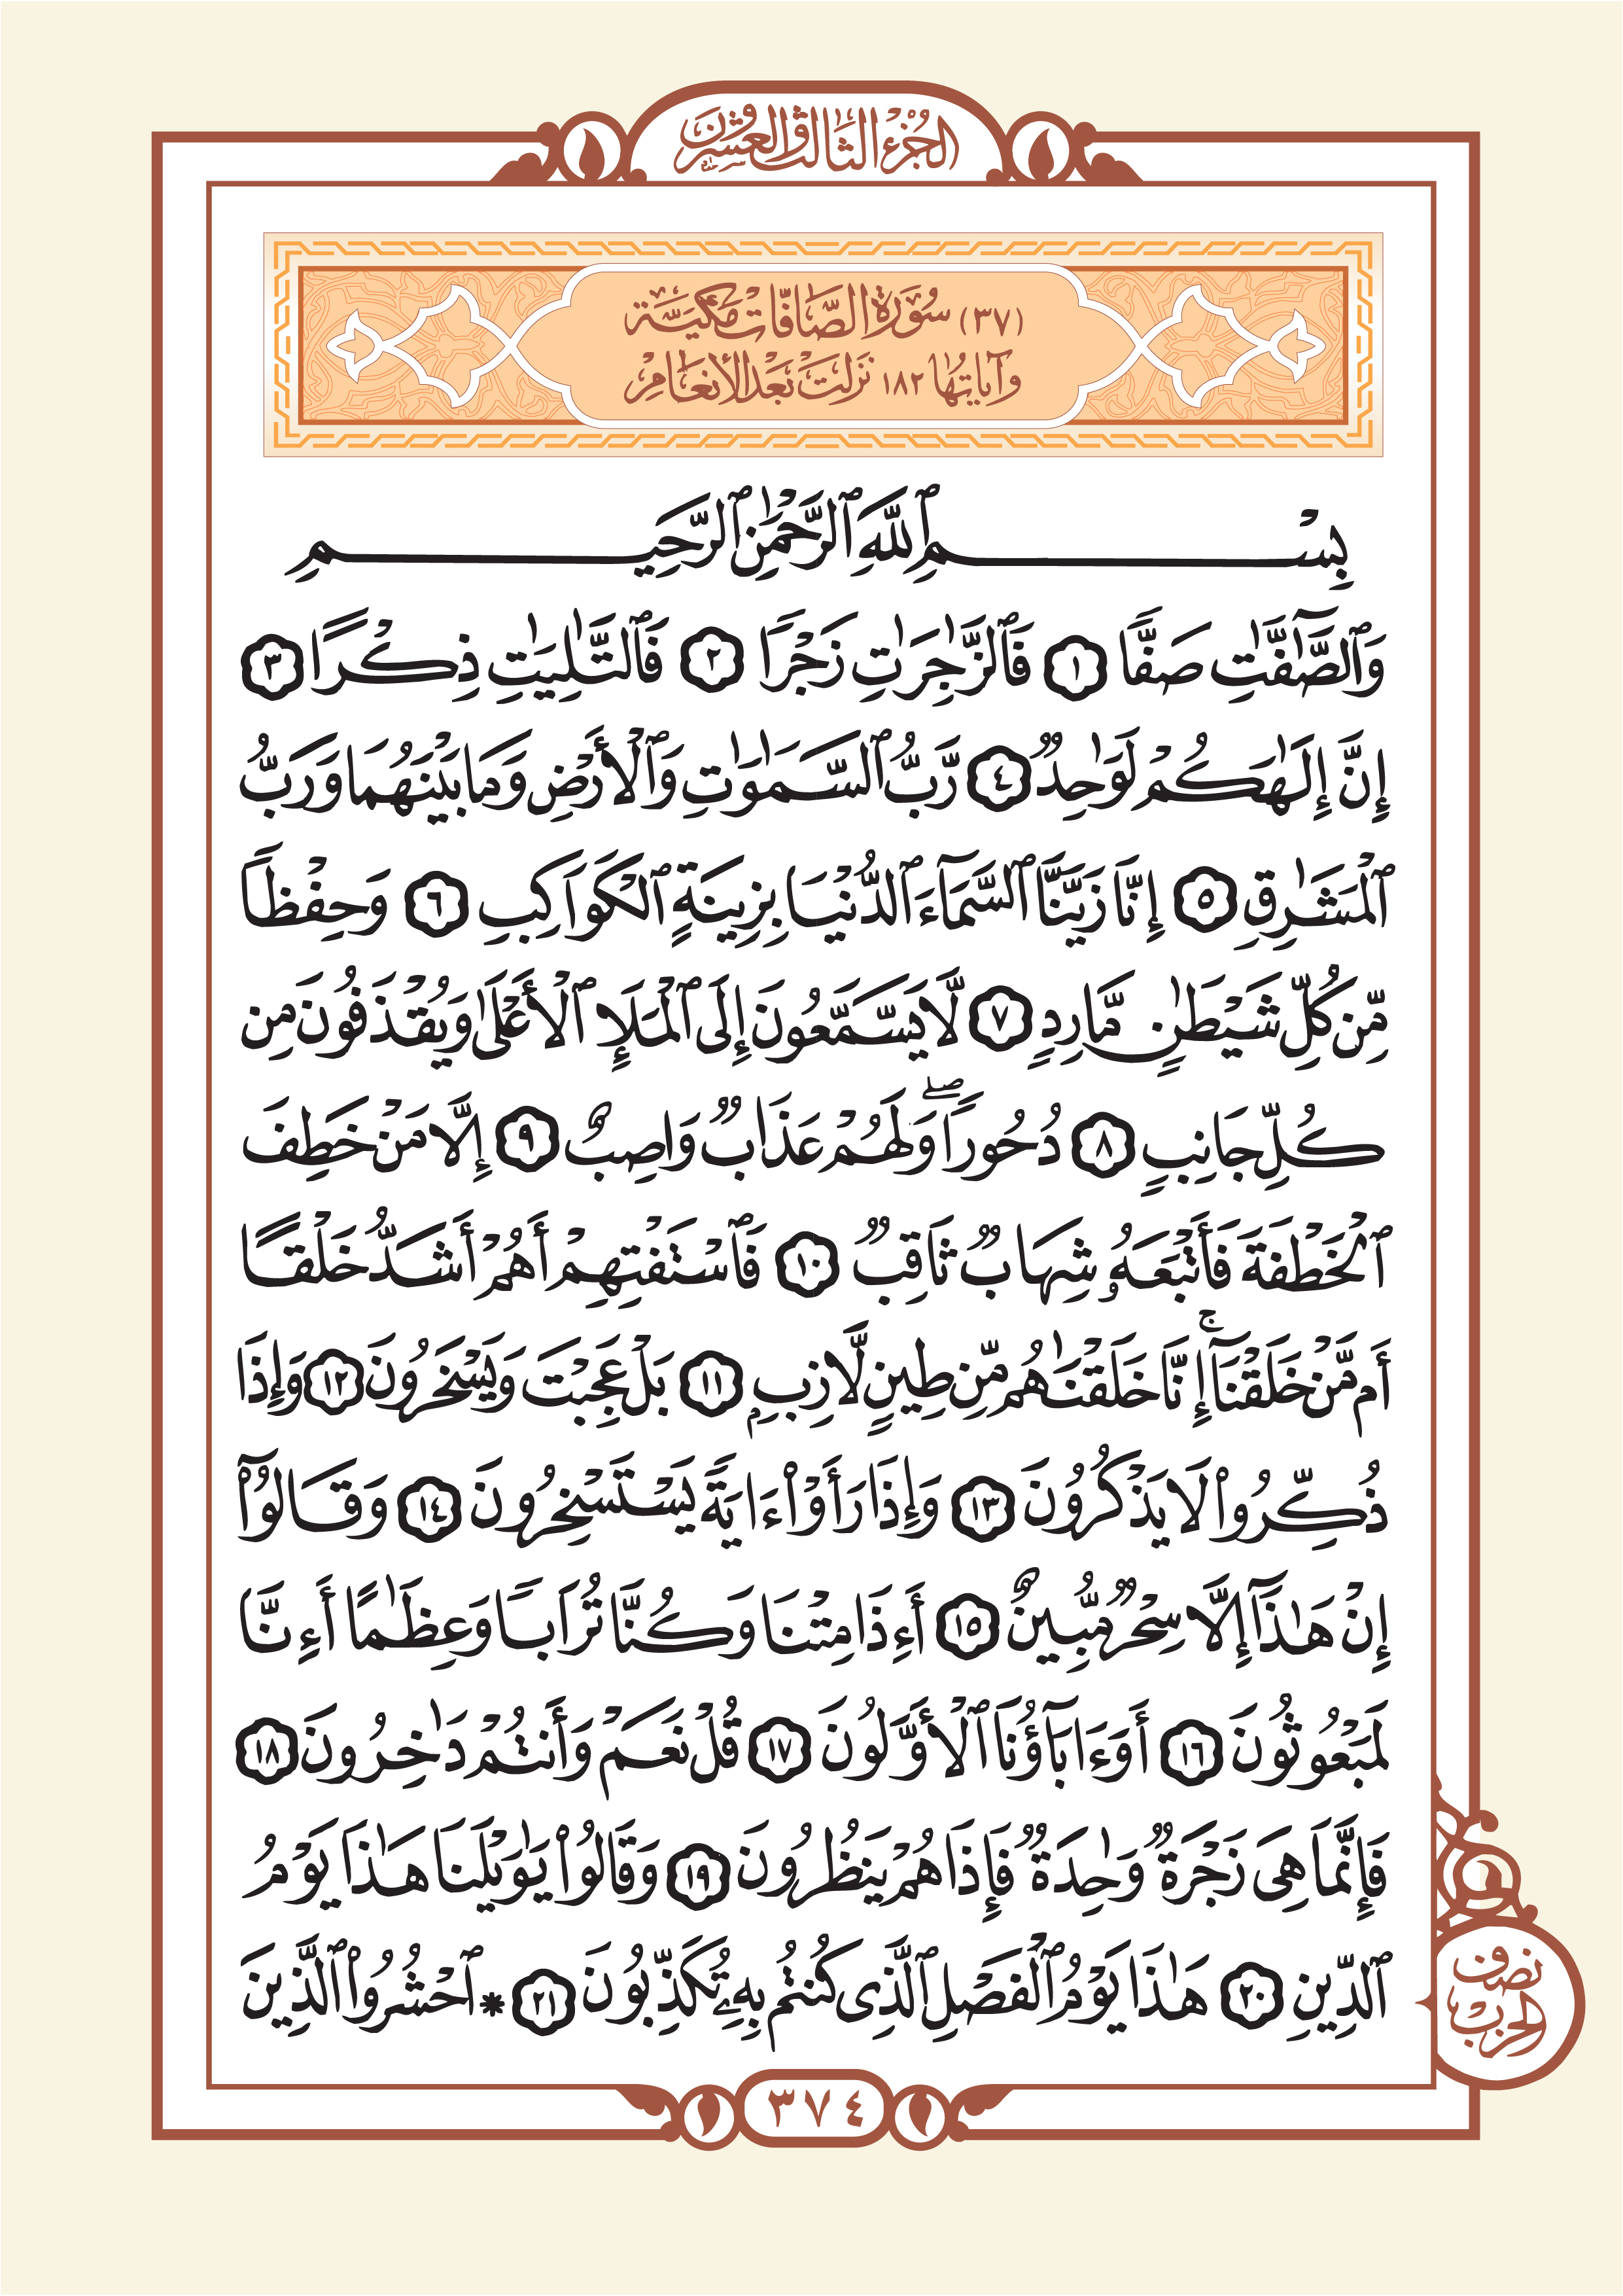 الجزء الثالث والعشرون
(٣٧) سُورَة الصَّافَّات مَكِّيَّة
وآياتُها ١٨٢ نَزلَتْ بَعْدَ الأَنعَامِ
بِسْمِ ٱللَّهِ ٱلرَّحْمَٰنِ ٱلرَّحِيمِ
وَٱلصَّٰٓفَّٰتِ صَفًّا ١ فَٱلزَّٰجِرَٰتِ زَجْرًا ٢ فَٱلتَّٰلِيَٰتِ ذِكْرًا ٣
إِنَّ إِلَٰهَكُمْ لَوَٰحِدٌ ٤ رَّبُّ ٱلسَّمَٰوَٰتِ وَٱلْأَرْضِ وَمَا بَيْنَهُمَا وَرَبُّ
ٱلْمَشَٰرِقِ ٥ إِنَّا زَيَّنَّا ٱلسَّمَآءَ ٱلدُّنْيَا بِزِينَةٍ ٱلْكَوَاكِبِ ٦ وَحِفْظًا
مِّن كُلِّ شَيْطَٰنٍ مَّارِدٍ ٧ لَّا يَسَّمَّعُونَ إِلَى ٱلْمَلَإِ ٱلْأَعْلَىٰ وَيُقْذَفُونَ مِن
كُلِّ جَانِبٍ ٨ دُحُورًا ۖ وَلَهُمْ عَذَابٌ وَاصِبٌ ٩ إِلَّا مَنْ خَطِفَ
ٱلْخَطْفَةَ فَأَتْبَعَهُۥ شِهَابٌ ثَاقِبٌ ١٠ فَٱسْتَفْتِهِمْ أَهُمْ أَشَدُّ خَلْقًا
أَم مَّنْ خَلَقْنَآ ۚ إِنَّا خَلَقْنَٰهُم مِّن طِينٍ لَّازِبٍۭ ١١ بَلْ عَجِبْتَ وَيَسْخَرُونَ ١٢ وَإِذَا
ذُكِّرُوا۟ لَا يَذْكُرُونَ ١٣ وَإِذَا رَأَوْا۟ ءَايَةً يَسْتَسْخِرُونَ ١٤ وَقَالُوٓا۟
إِنْ هَٰذَآ إِلَّا سِحْرٌ مُّبِينٌ ١٥ أَءِذَا مِتْنَا وَكُنَّا تُرَابًا وَعِظَٰمًا أَءِنَّا
لَمَبْعُوثُونَ ١٦ أَوَءَابَآؤُنَا ٱلْأَوَّلُونَ ١٧ قُلْ نَعَمْ وَأَنتُمْ دَٰخِرُونَ ١٨
فَإِنَّمَا هِىَ زَجْرَةٌ وَٰحِدَةٌ فَإِذَا هُمْ يَنظُرُونَ ١٩ وَقَالُوا۟ يَٰوَيْلَنَا هَٰذَا يَوْمُ
ٱلدِّينِ ٢٠ هَٰذَا يَوْمُ ٱلْفَصْلِ ٱلَّذِى كُنتُم بِهِۦ تُكَذِّبُونَ ٢١ * ٱحْشُرُوا۟ ٱلَّذِينَ
نصف
الحزب
٣٧٤